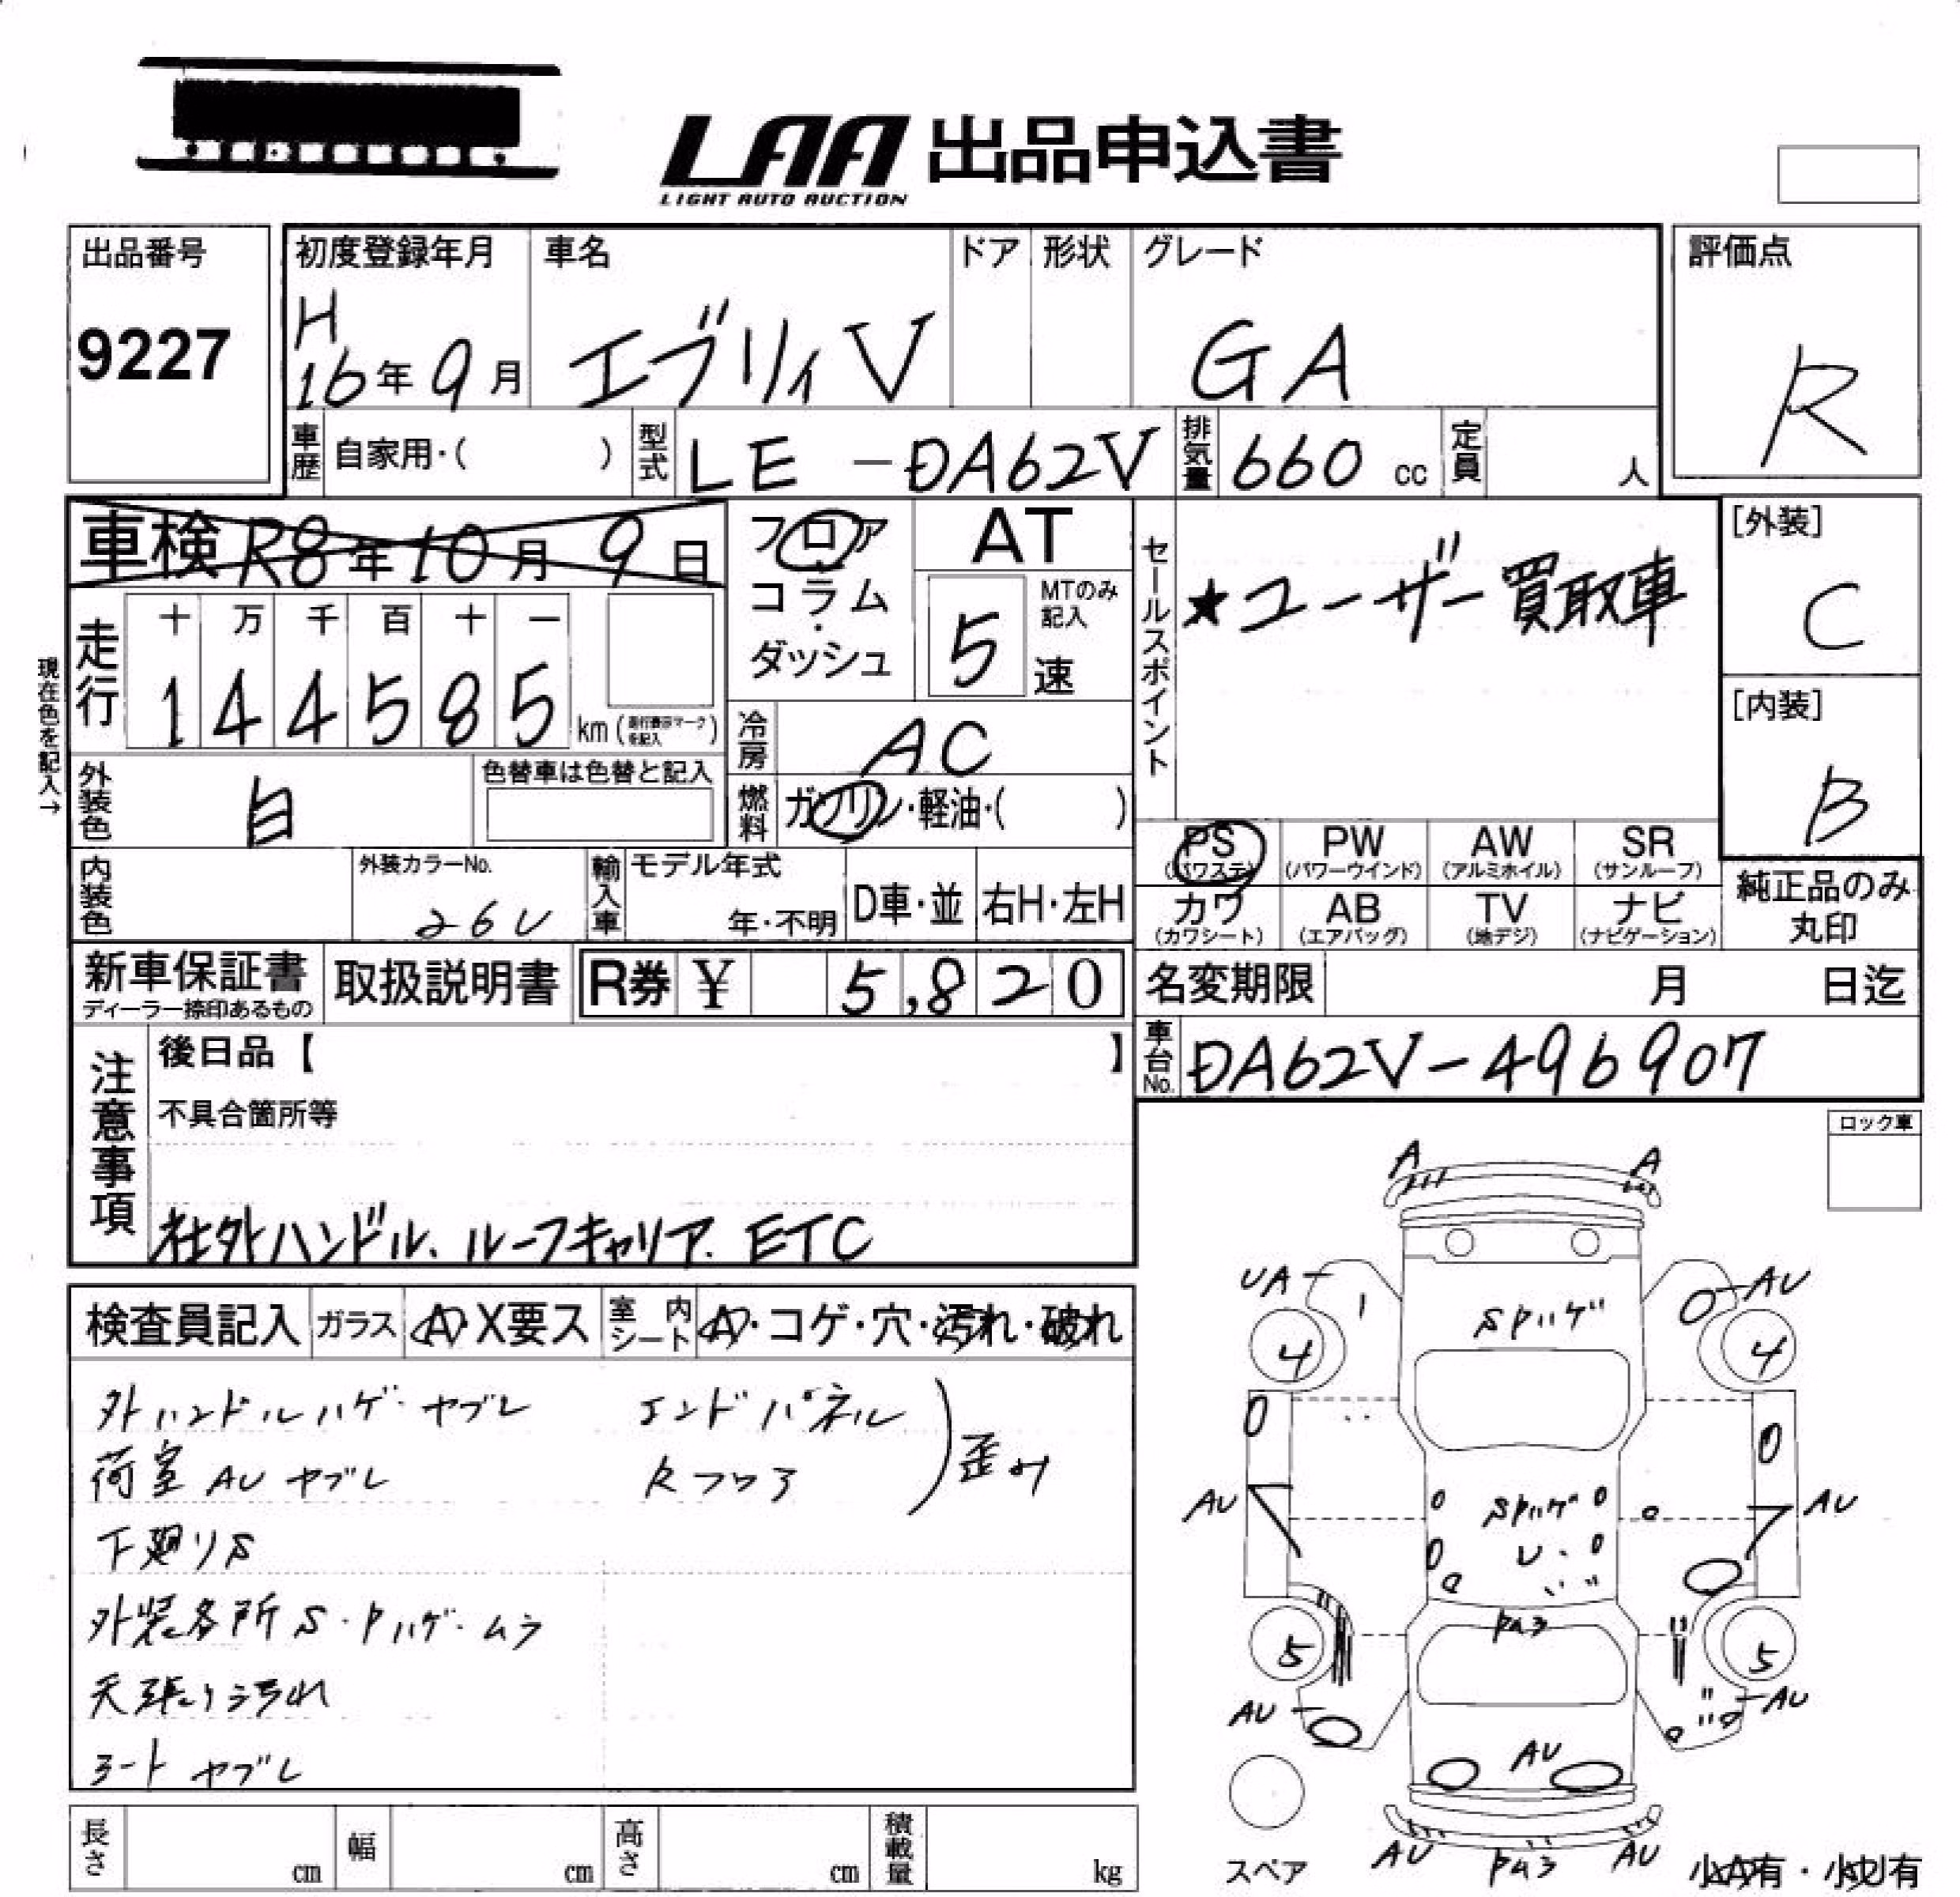 LAA 出品申込書
LIGHT AUTO AUCTION
出品番号
9227
初度登録年月
H
16年 9月
車名
エブリィV
ドア
形状
グレード
GA
評価点
R
車歴
自家用・( )
型式
LE -DA62V
排気量
660 cc
定員
人
車検 R8年 10月 9日
フロア
コラム
・
ダッシュ
AT
MTのみ
記入
5 速
セールスポイント
★ユーザー買取車
[外装]
C
[内装]
B
現在色を記入→
走行
十 万 千 百 十 一
1 4 4 5 8 5 km
冷房
AC
外装色
白
色替車は色替と記入
燃料
ガソリン・軽油・( )
PS
(パワステ)
PW
(パワーウインド)
AW
(アルミホイル)
SR
(サンルーフ)
カワ
(カワシート)
AB
(エアバッグ)
TV
(地デジ)
ナビ
(ナビゲーション)
純正品のみ
丸印
内装色
外装カラーNo.
26U
輸入車
モデル年式
年・不明
D車・並
右H・左H
新車保証書
ディーラー捺印あるもの
取扱説明書
R券 ¥ 5,820
名変期限
月 日迄
車台No.
DA62V-496907
注意事項
後日品【 】
不具合箇所等
社外ハンドル、ルーフキャリア、ETC
ロック車
検査員記入
ガラス
A・X要ス
室内シート
A・コゲ・穴・汚れ・破れ
外ハンドルハゲ・ヤブレ
荷室 AU ヤブレ
下廻りS
外装各所 S・Pハゲ・ムラ
天張り汚れ
シート ヤブレ
エンドパネル
Rフロア
歪み
A
A
UA
AU
SPハゲ
4
4
AU
SPハゲ
AU
U
Pムラ
5
5
AU
AU
AU
AU
Pムラ
AU
スペア
小A有・小U有
長さ
cm
幅
cm
高さ
cm
積載量
kg